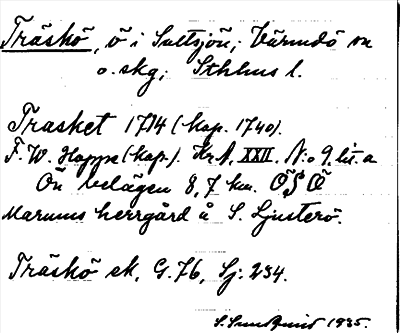 Träskö, ö i Saltsjön; Värmdö sn
o. skg; Sthlms l.
Trasket 1714 (kop. 1740).
F. W. Hoppe (kop.). Kr. A. XXII. N:o 9. lit. a
Ön belägen 8,7 km. ÖSÖ
Marums herrgård å S. Ljusterö.
Träskö ek, G. 76, Sj: 234.
1935.